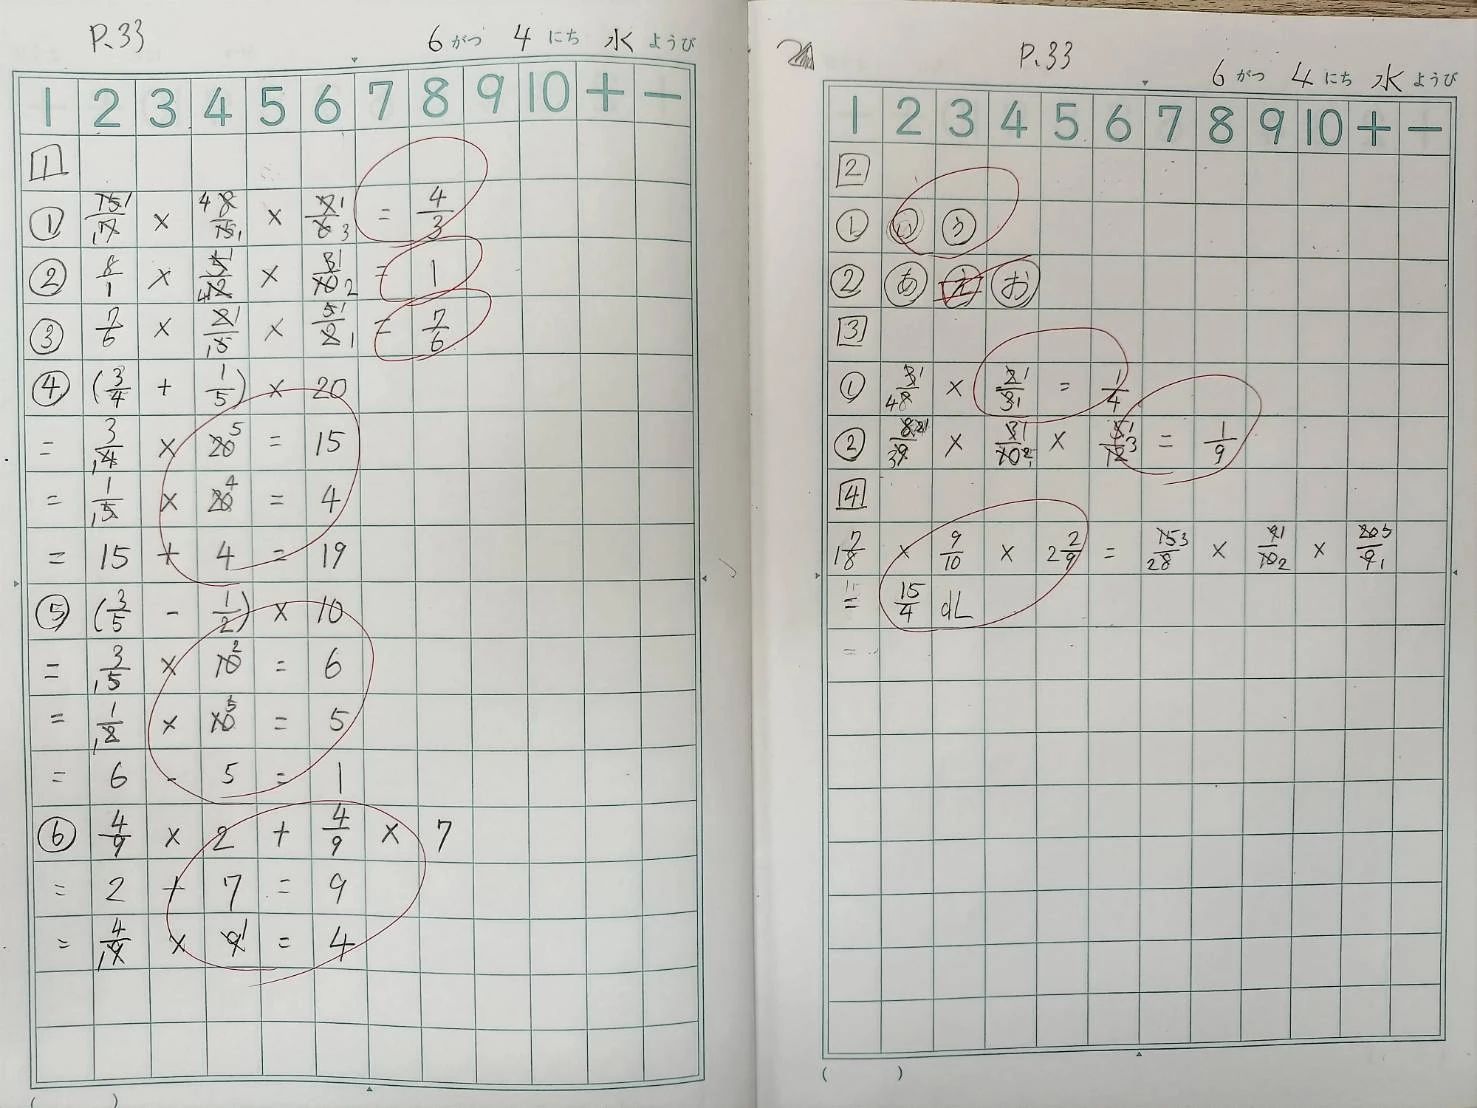 P.33
6がつ 4にち 水ようび
1 2 3 4 5 6 7 8 9 10 + -
1
① 15/17 × 8/15 × / = 4/3
② 8/1 × 5/12 × 3/10 = 1
③ 7/6 × 2/5 × 5/2 = 7/6
④ (3/4 + 1/5) × 20
= 3/4 × 20 = 15
= 1/5 × 20 = 4
= 15 + 4 = 19
⑤ (3/5 - 1/2) × 10
= 3/5 × 10 = 6
= 1/2 × 10 = 5
= 6 - 5 = 1
⑥ 4/9 × 2 + 4/9 × 7
= 2 + 7 = 9
= 4/9 × 9 = 4
( )
P.33
6がつ 4にち 水ようび
1 2 3 4 5 6 7 8 9 10 + -
2
① い う
② あ え お
3
① 3/8 × 2/3 = 1/4
② 8/9 × 3/10 × 5/12 = 1/9
4
1 7/8 × 9/10 × 2 2/9 = 15/8 × 9/10 × 20/9
= 15/4 dL
=
( )